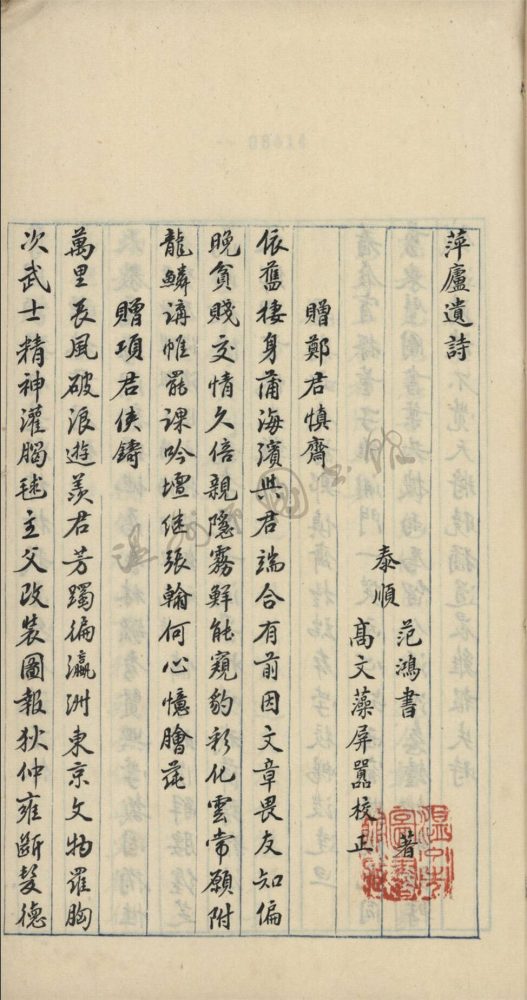 萍廬遺詩
泰順
范鴻書著
高文藻屏嚚校正
贈鄭君慎齋
依舊棲身蒲海濱與君端合有前因文章畏友知偏
晚貧賤交情久倍親隱霧鮮能窺豹彩化雲常願附
龍鱗講帷罷課吟壇繼張翰何心憶膾蓴
贈項君俠鑄
萬里長風破浪遊羨君芳躅徧瀛洲東京文物羅胸
次武士精神灌腦毬主父改裝圖報狄仲雍斷髮德
溫州市圖書館